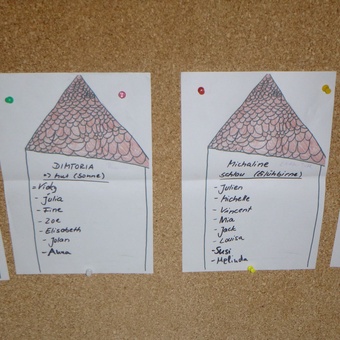 DIMTORIA
=> Hut (Sonne)
- Vicky
- Julia
- Fine
- Zoe
- Elisabeth
- Jolan
- Anna
Michaline
schlau (Glühbirne)
- Julien
- Michelle
- Vincent
- Mia
- Jack
- Louisa
- Susi
- Melinda